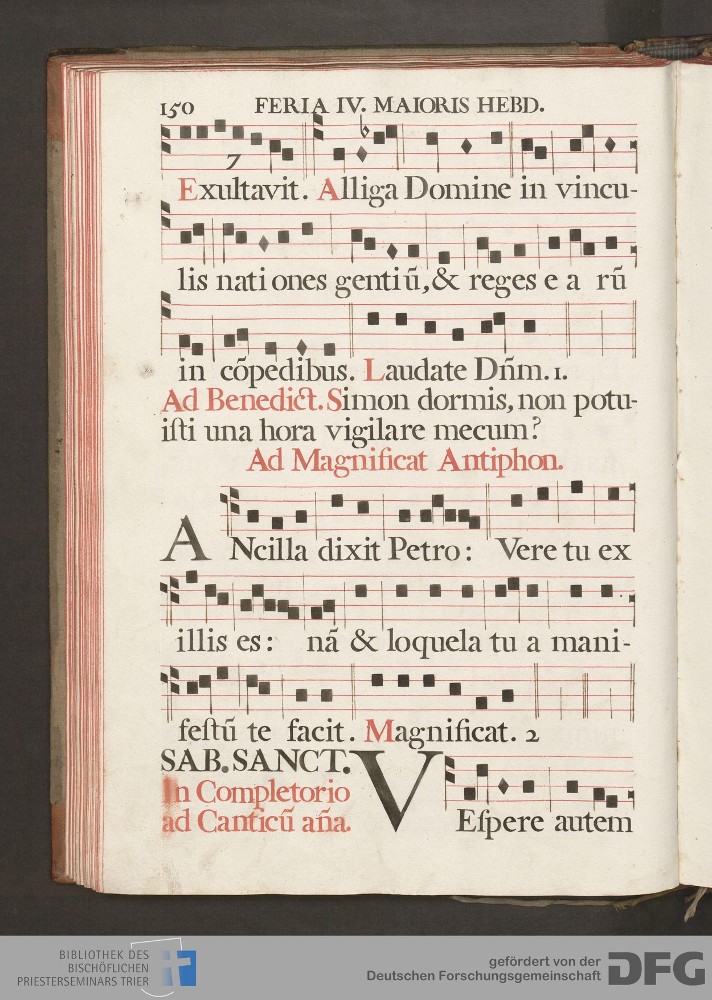 150 FERIA IV. MAIORIS HEBD.
7
Exultavit. Alliga Domine in vincu-
lis nationes gentiū, & reges e a rū
in cōpedibus. Laudate Dn̄m. 1.
Ad Benedict. Simon dormis, non potu-
iſti una hora vigilare mecum?
Ad Magnificat Antiphon.
ANcilla dixit Petro: Vere tu ex
illis es: nā & loquela tu a mani-
feſtū te facit. Magnificat. 2
SAB. SANCT.
In Completorio
ad Canticū an̄a.
VEſpere autem
BIBLIOTHEK DES
BISCHÖFLICHEN
PRIESTERSEMINARS TRIER
gefördert von der
Deutschen Forschungsgemeinschaft
DFG